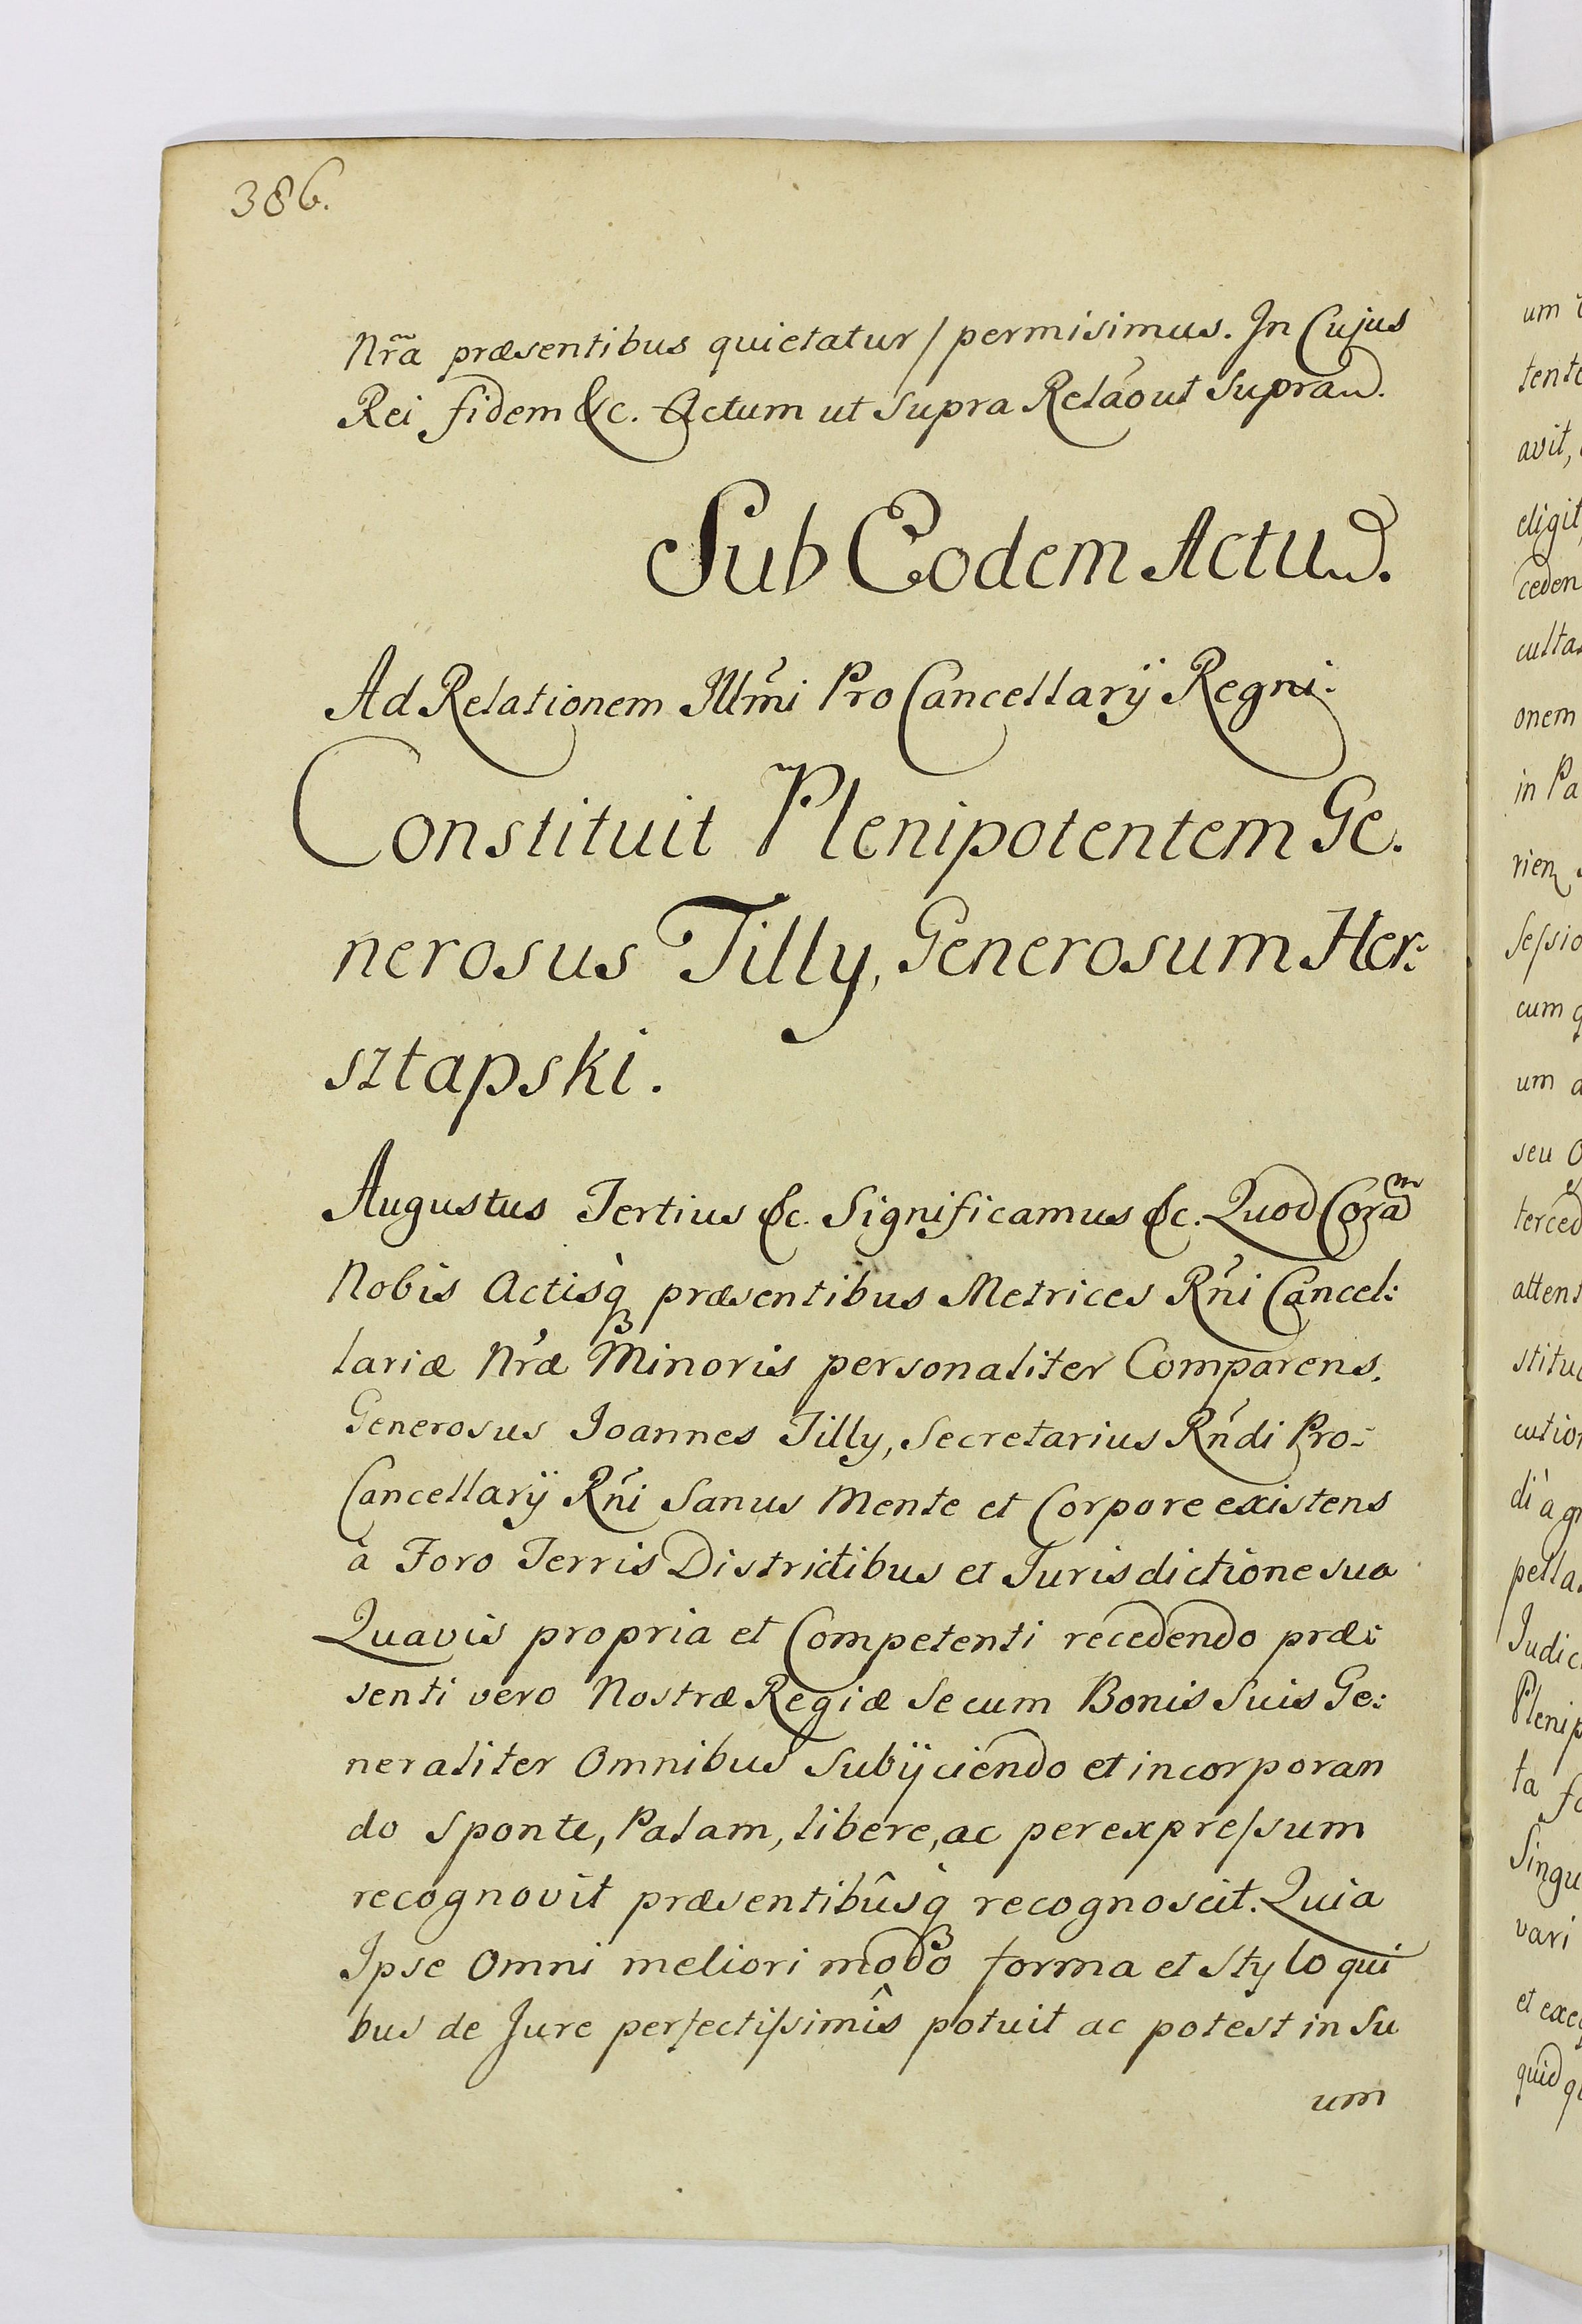 386.
Nr̃a præsentibus quietatur / permisimus. In Cujus
Rei fidem &c. Actum ut Supra Relão ut Supra.
Sub Eodem Actu.
Ad Relationem Illm̃i ProCancellarÿ Regni.
Constituit Plenipotentem Ge.
nerosus Tilly, Generosum Her:
sztapski.
Augustus Tertius &c. Significamus &c. Quod Coram
Nobis Actisq̀ præsentibus Metrices Rńi Cancel:
lariæ Nŕæ Minoris personaliter Comparens.
Generosus Joannes Tilly, Secretarius Rńdi Pro-
Cancellarÿ Rńi Sanus Mente et Corpore existens
à Foro Terris Districtibus et Jurisdictione sua
Quavis propria et Competenti recedendo præ:
senti vero Nostræ Regiæ Secum Bonis Suis Ge:
neraliter Omnibus Subÿciendo et incorporan
do Sponte, Palam, libere, ac per expreſsum
recognovit præsentibûsq̀ recognoscit. Quia
Ipse Omni meliori modo forma et Stylo qui
bus de Jure perfectiſsimîs potuit ac potest in Su
um
um
tent
avit,
eligit,
ceden
culta
onem
in Pa
rien
Seſsio
cum q
um a
seu O
terced
attent
stitu
cution
di à gr
pella
Judic
Plenip
ta fo
Singu
vari
et exeq
quid q